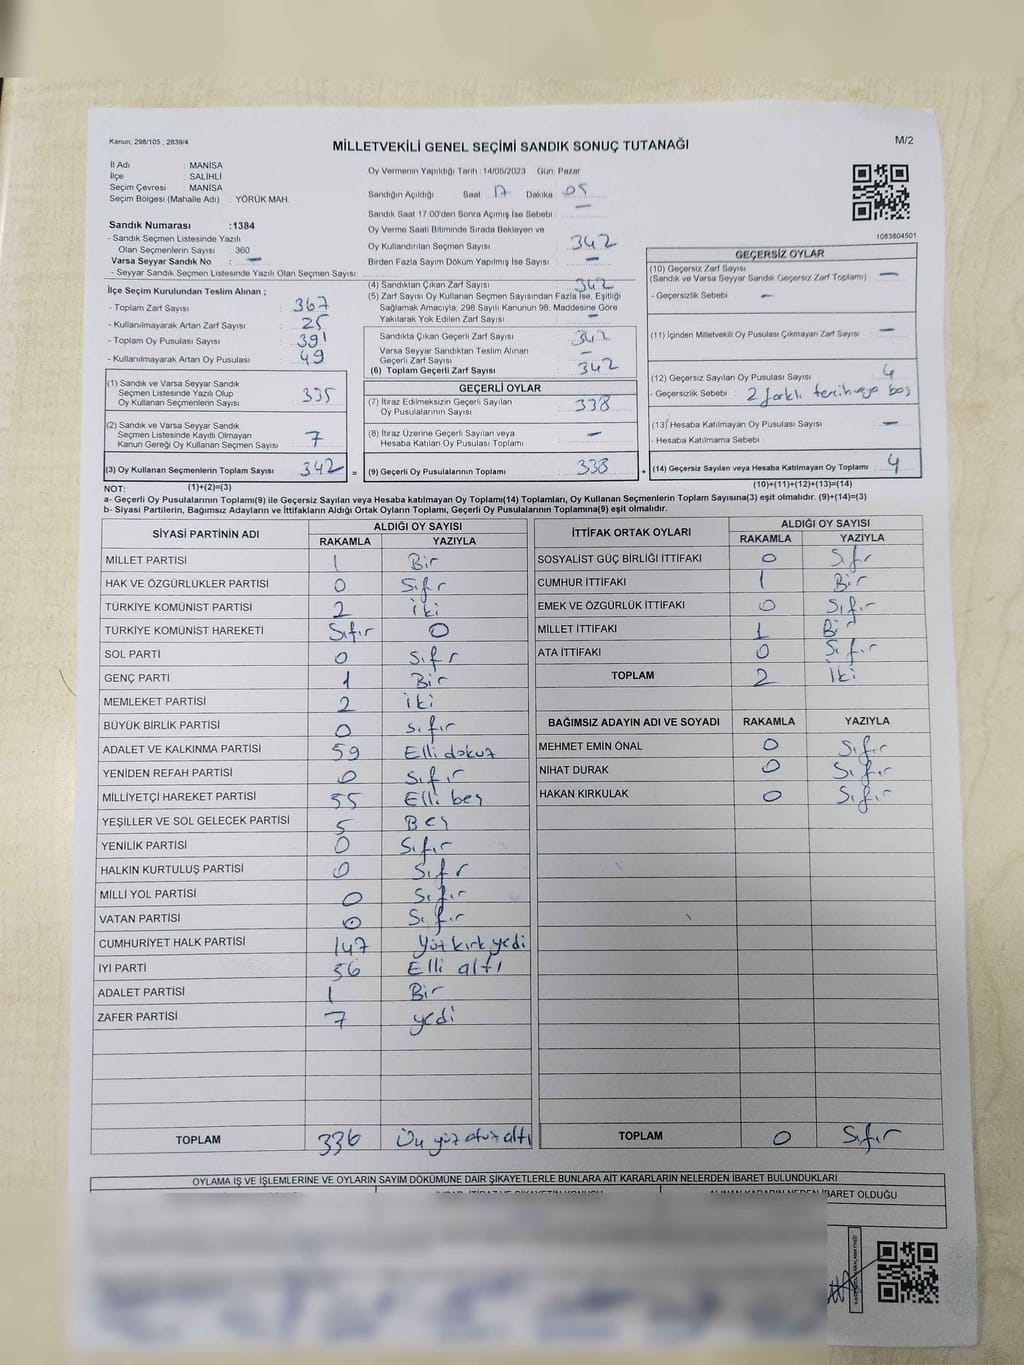 Kanun; 298/105 , 2839/4
MİLLETVEKİLİ GENEL SEÇİMİ SANDIK SONUÇ TUTANAĞI
M/2
İl Adı : MANİSA
İlçe : SALİHLİ
Seçim Çevresi : MANİSA
Seçim Bölgesi (Mahalle Adı) : YÖRÜK MAH.
Oy Vermenin Yapıldığı Tarih : 14/05/2023 Gün: Pazar
Sandığın Açıldığı Saat 17 Dakika 05
Sandık Saat 17.00'den Sonra Açımış İse Sebebi : —
Oy Verme Saati Bitiminde Sırada Bekleyen ve
Oy Kullandırılan Seçmen Sayısı : 342
Birden Fazla Sayım Döküm Yapılmış İse Sayısı : —
1083804501
Sandık Numarası : 1384
- Sandık Seçmen Listesinde Yazılı
Olan Seçmenlerin Sayısı : 360
Varsa Seyyar Sandık No : —
- Seyyar Sandık Seçmen Listesinde Yazılı Olan Seçmen Sayısı:
İlçe Seçim Kurulundan Teslim Alınan ;
- Toplam Zarf Sayısı : 367
- Kullanılmayarak Artan Zarf Sayısı : 25
- Toplam Oy Pusulası Sayısı : 391
- Kullanılmayarak Artan Oy Pusulası : 49
(1) Sandık ve Varsa Seyyar Sandık
Seçmen Listesinde Yazılı Olup
Oy Kullanan Seçmenlerin Sayısı : 335
(2) Sandık ve Varsa Seyyar Sandık
Seçmen Listesinde Kayıtlı Olmayan
Kanun Gereği Oy Kullanan Seçmen Sayısı : 7
(3) Oy Kullanan Seçmenlerin Toplam Sayısı : 342 =
(4) Sandıktan Çıkan Zarf Sayısı : 342
(5) Zarf Sayısı Oy Kullanan Seçmen Sayısından Fazla İse, Eşitliği
Sağlamak Amacıyla; 298 Sayılı Kanunun 98. Maddesine Göre
Yakılarak Yok Edilen Zarf Sayısı : —
Sandıkta Çıkan Geçerli Zarf Sayısı : 342
Varsa Seyyar Sandıktan Teslim Alınan
Geçerli Zarf Sayısı : —
(6) Toplam Geçerli Zarf Sayısı : 342
GEÇERLİ OYLAR
(7) İtiraz Edilmeksizin Geçerli Sayılan
Oy Pusulalarının Sayısı : 338
(8) İtiraz Üzerine Geçerli Sayılan veya
Hesaba Katılan Oy Pusulası Toplamı : —
(9) Geçerli Oy Pusulalarının Toplamı : 338 +
GEÇERSİZ OYLAR
(10) Geçersiz Zarf Sayısı
(Sandık ve Varsa Seyyar Sandık Geçersiz Zarf Toplamı) : —
- Geçersizlik Sebebi : —
(11) İçinden Milletvekili Oy Pusulası Çıkmayan Zarf Sayısı : —
(12) Geçersiz Sayılan Oy Pusulası Sayısı : 4
- Geçersizlik Sebebi : 2 farklı tercih veya boş
(13) Hesaba Katılmayan Oy Pusulası Sayısı : —
- Hesaba Katılmama Sebebi :
(14) Geçersiz Sayılan veya Hesaba Katılmayan Oy Toplamı : 4
NOT: (1)+(2)=(3)
(10)+(11)+(12)+(13)=(14)
a- Geçerli Oy Pusulalarının Toplamı(9) ile Geçersiz Sayılan veya Hesaba katılmayan Oy Toplamı(14) Toplamları, Oy Kullanan Seçmenlerin Toplam Sayısına(3) eşit olmalıdır. (9)+(14)=(3)
b- Siyasi Partilerin, Bağımsız Adayların ve İttifakların Aldığı Ortak Oyların Toplamı, Geçerli Oy Pusulalarının Toplamına(9) eşit olmalıdır.
SİYASİ PARTİNİN ADI ALDIĞI OY SAYISI
RAKAMLA YAZIYLA
MİLLET PARTİSİ 1 Bir
HAK VE ÖZGÜRLÜKLER PARTİSİ 0 Sıfır
TÜRKİYE KOMÜNİST PARTİSİ 2 iki
TÜRKİYE KOMÜNİST HAREKETİ Sıfır 0
SOL PARTİ 0 Sıfır
GENÇ PARTİ 1 Bir
MEMLEKET PARTİSİ 2 iki
BÜYÜK BİRLİK PARTİSİ 0 sıfır
ADALET VE KALKINMA PARTİSİ 59 Elli dokuz
YENİDEN REFAH PARTİSİ 0 Sıfır
MİLLİYETÇİ HAREKET PARTİSİ 55 Elli beş
YEŞİLLER VE SOL GELECEK PARTİSİ 5 Beş
YENİLİK PARTİSİ 0 Sıfır
HALKIN KURTULUŞ PARTİSİ 0 Sıfır
MİLLİ YOL PARTİSİ 0 Sıfır
VATAN PARTİSİ 0 Sıfır
CUMHURİYET HALK PARTİSİ 147 Yüz kırk yedi
İYİ PARTİ 56 Elli altı
ADALET PARTİSİ 1 Bir
ZAFER PARTİSİ 7 yedi
TOPLAM 336 Üç yüz otuz altı
İTTİFAK ORTAK OYLARI ALDIĞI OY SAYISI
RAKAMLA YAZIYLA
SOSYALİST GÜÇ BİRLİĞİ İTTİFAKI 0 Sıfır
CUMHUR İTTİFAKI 1 Bir
EMEK VE ÖZGÜRLÜK İTTİFAKI 0 Sıfır
MİLLET İTTİFAKI 1 Bir
ATA İTTİFAKI 0 Sıfır
TOPLAM 2 İki
BAĞIMSIZ ADAYIN ADI VE SOYADI RAKAMLA YAZIYLA
MEHMET EMİN ÖNAL 0 Sıfır
NİHAT DURAK 0 Sıfır
HAKAN KIRKULAK 0 Sıfır
TOPLAM 0 Sıfır
OYLAMA İŞ VE İŞLEMLERİNE VE OYLARIN SAYIM DÖKÜMÜNE DAİR ŞİKAYETLERLE BUNLARA AİT KARARLARIN NELERDEN İBARET BULUNDUKLARI
ALINAN KARARIN NEDEN İBARET OLDUĞU